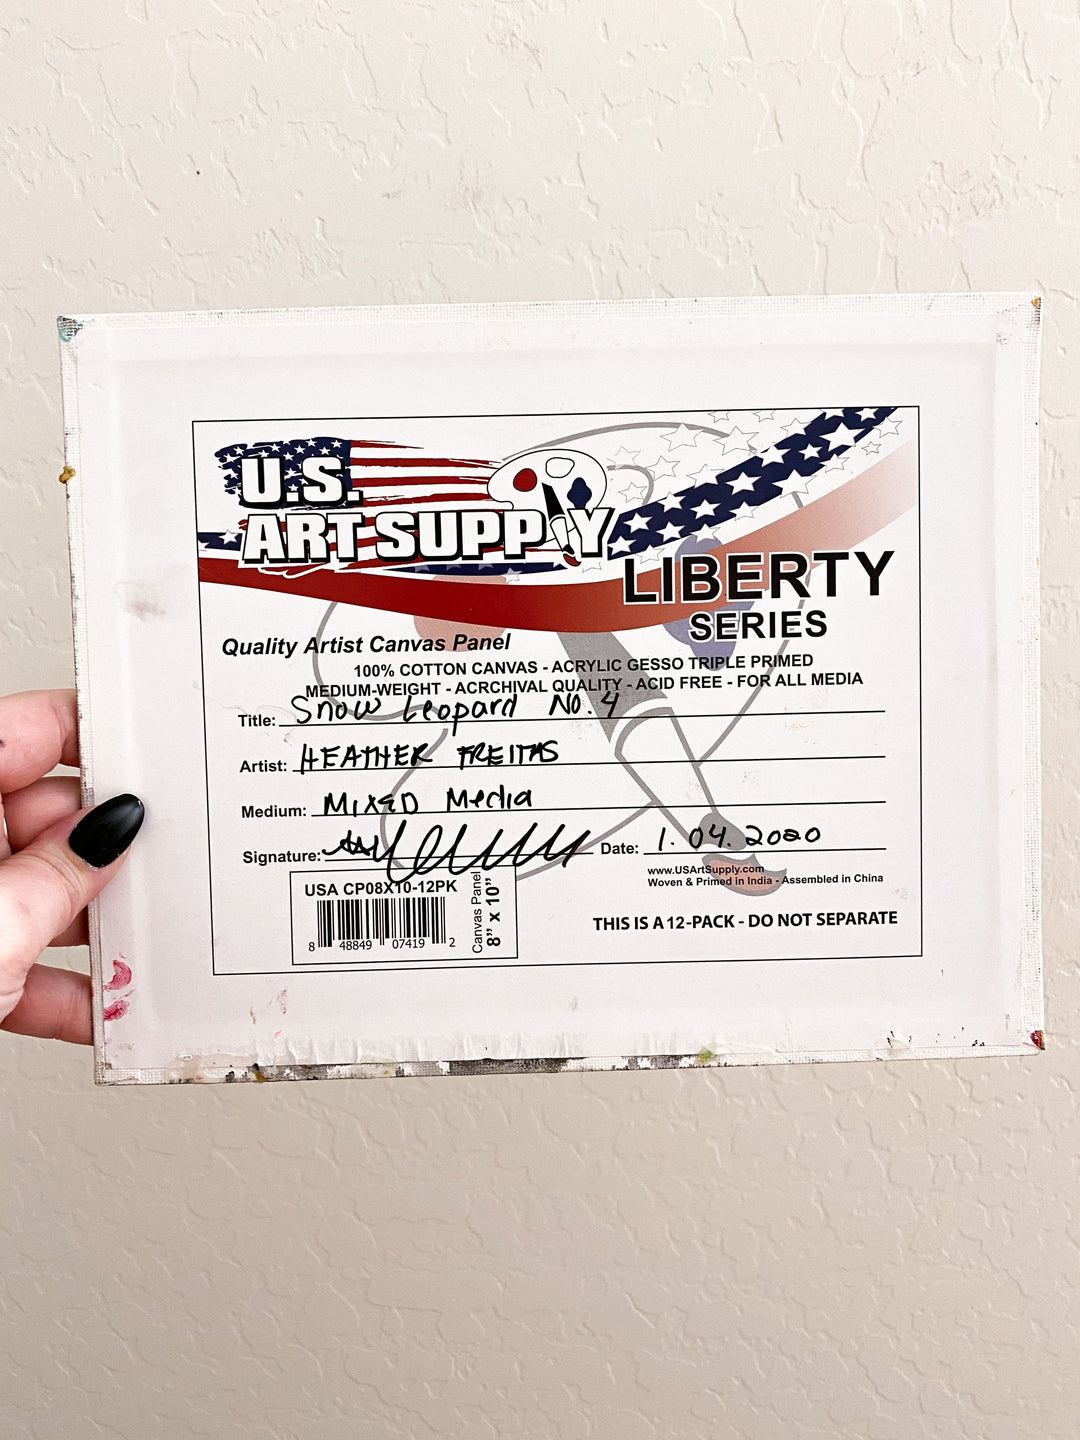 U.S.
ART SUPPLY
LIBERTY
SERIES
Quality Artist Canvas Panel
100% COTTON CANVAS - ACRYLIC GESSO TRIPLE PRIMED
MEDIUM-WEIGHT - ACRCHIVAL QUALITY - ACID FREE - FOR ALL MEDIA
Title: Snow Leopard No. 4
Artist: HEATHER FREITAS
Medium: MIXED Media
Signature: Date: 1.04.2020
www.USArtSupply.com
Woven & Primed in India - Assembled in China
USA CP08X10-12PK
8 48849 07419 2
Canvas Panel
8" x 10"
THIS IS A 12-PACK - DO NOT SEPARATE